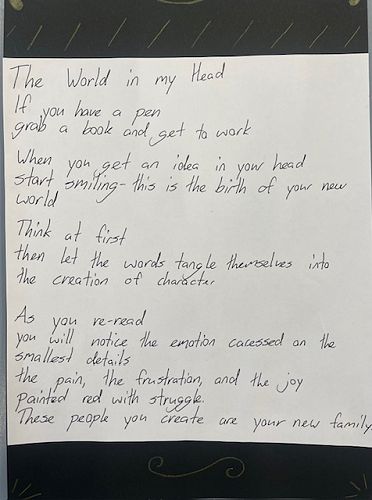 The World in my Head
If you have a pen
grab a book and get to work
When you get an idea in your head
start smiling - this is the birth of your new
world
Think at first
then let the words tangle themselves into
the creation of character
As you re-read
you will notice the emotion cacessed on the
smallest details
the pain, the frustration, and the joy
painted red with struggle.
These people you create are your new family